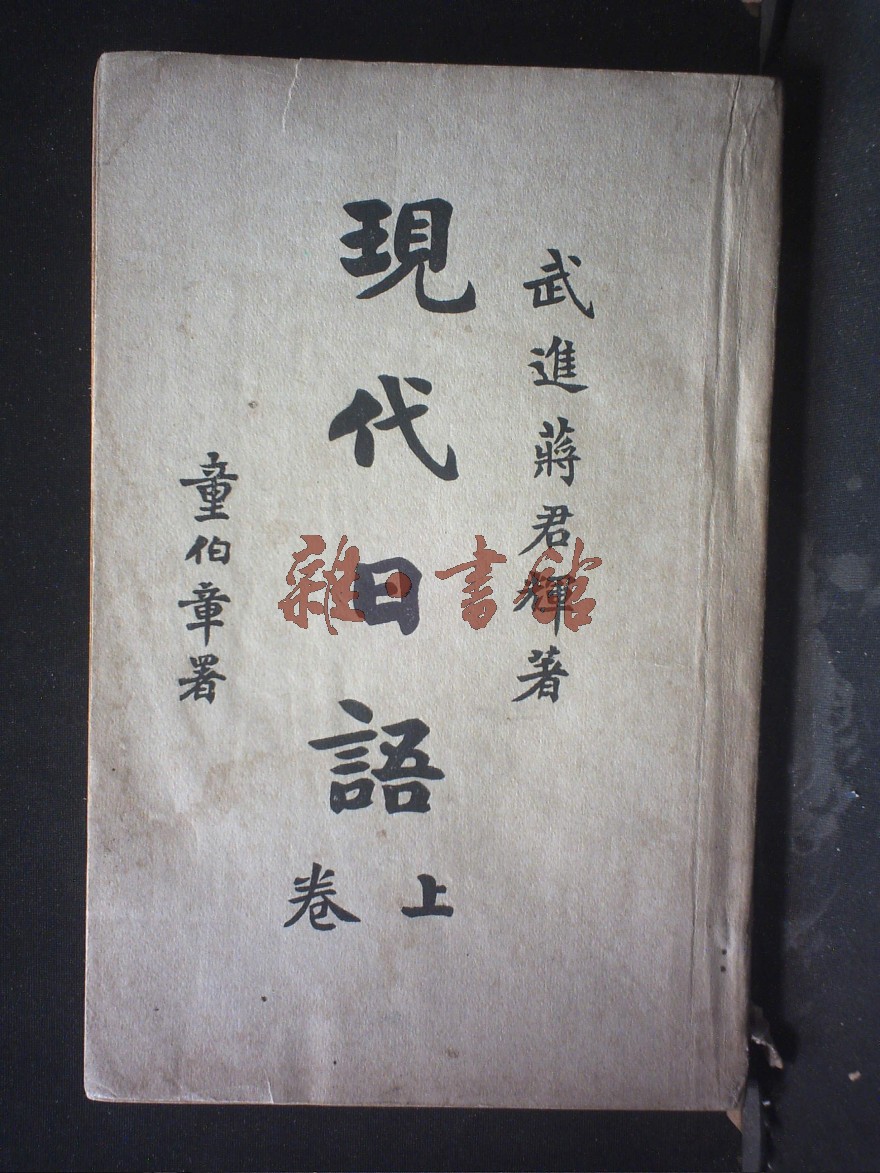 武進蔣君輝著
現代日語
上卷
童伯章署
雜·書館